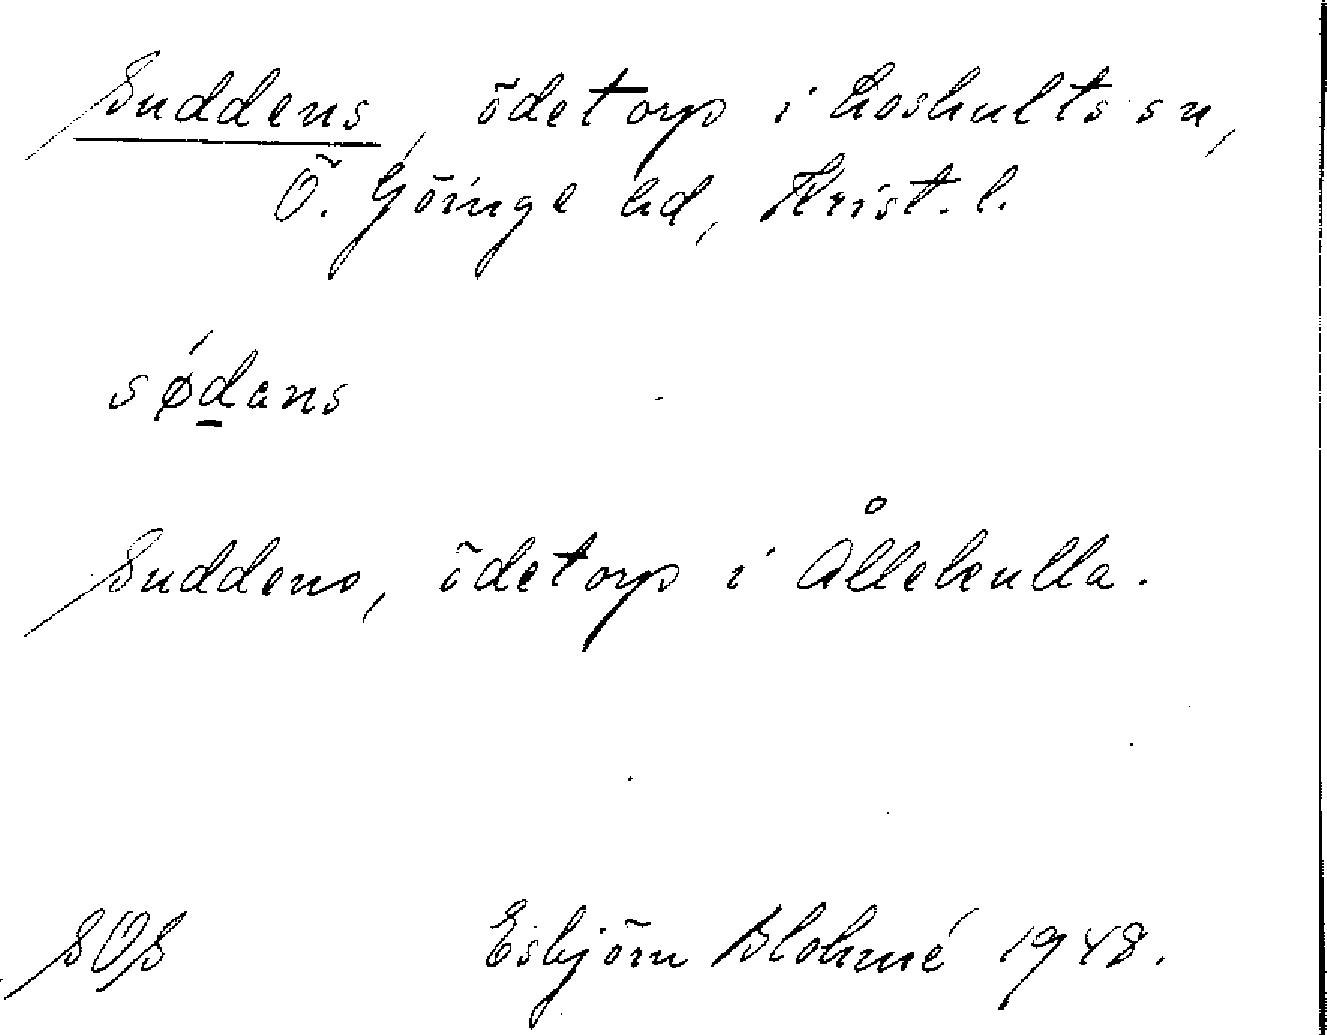 Suddens, ödetorp i Loshults sn,
Ö. Göinge hd, Krist. l.
sǿdans
Suddens, ödetorp i Ållekulla.
SOS Esbjörn Blohmé 1948.